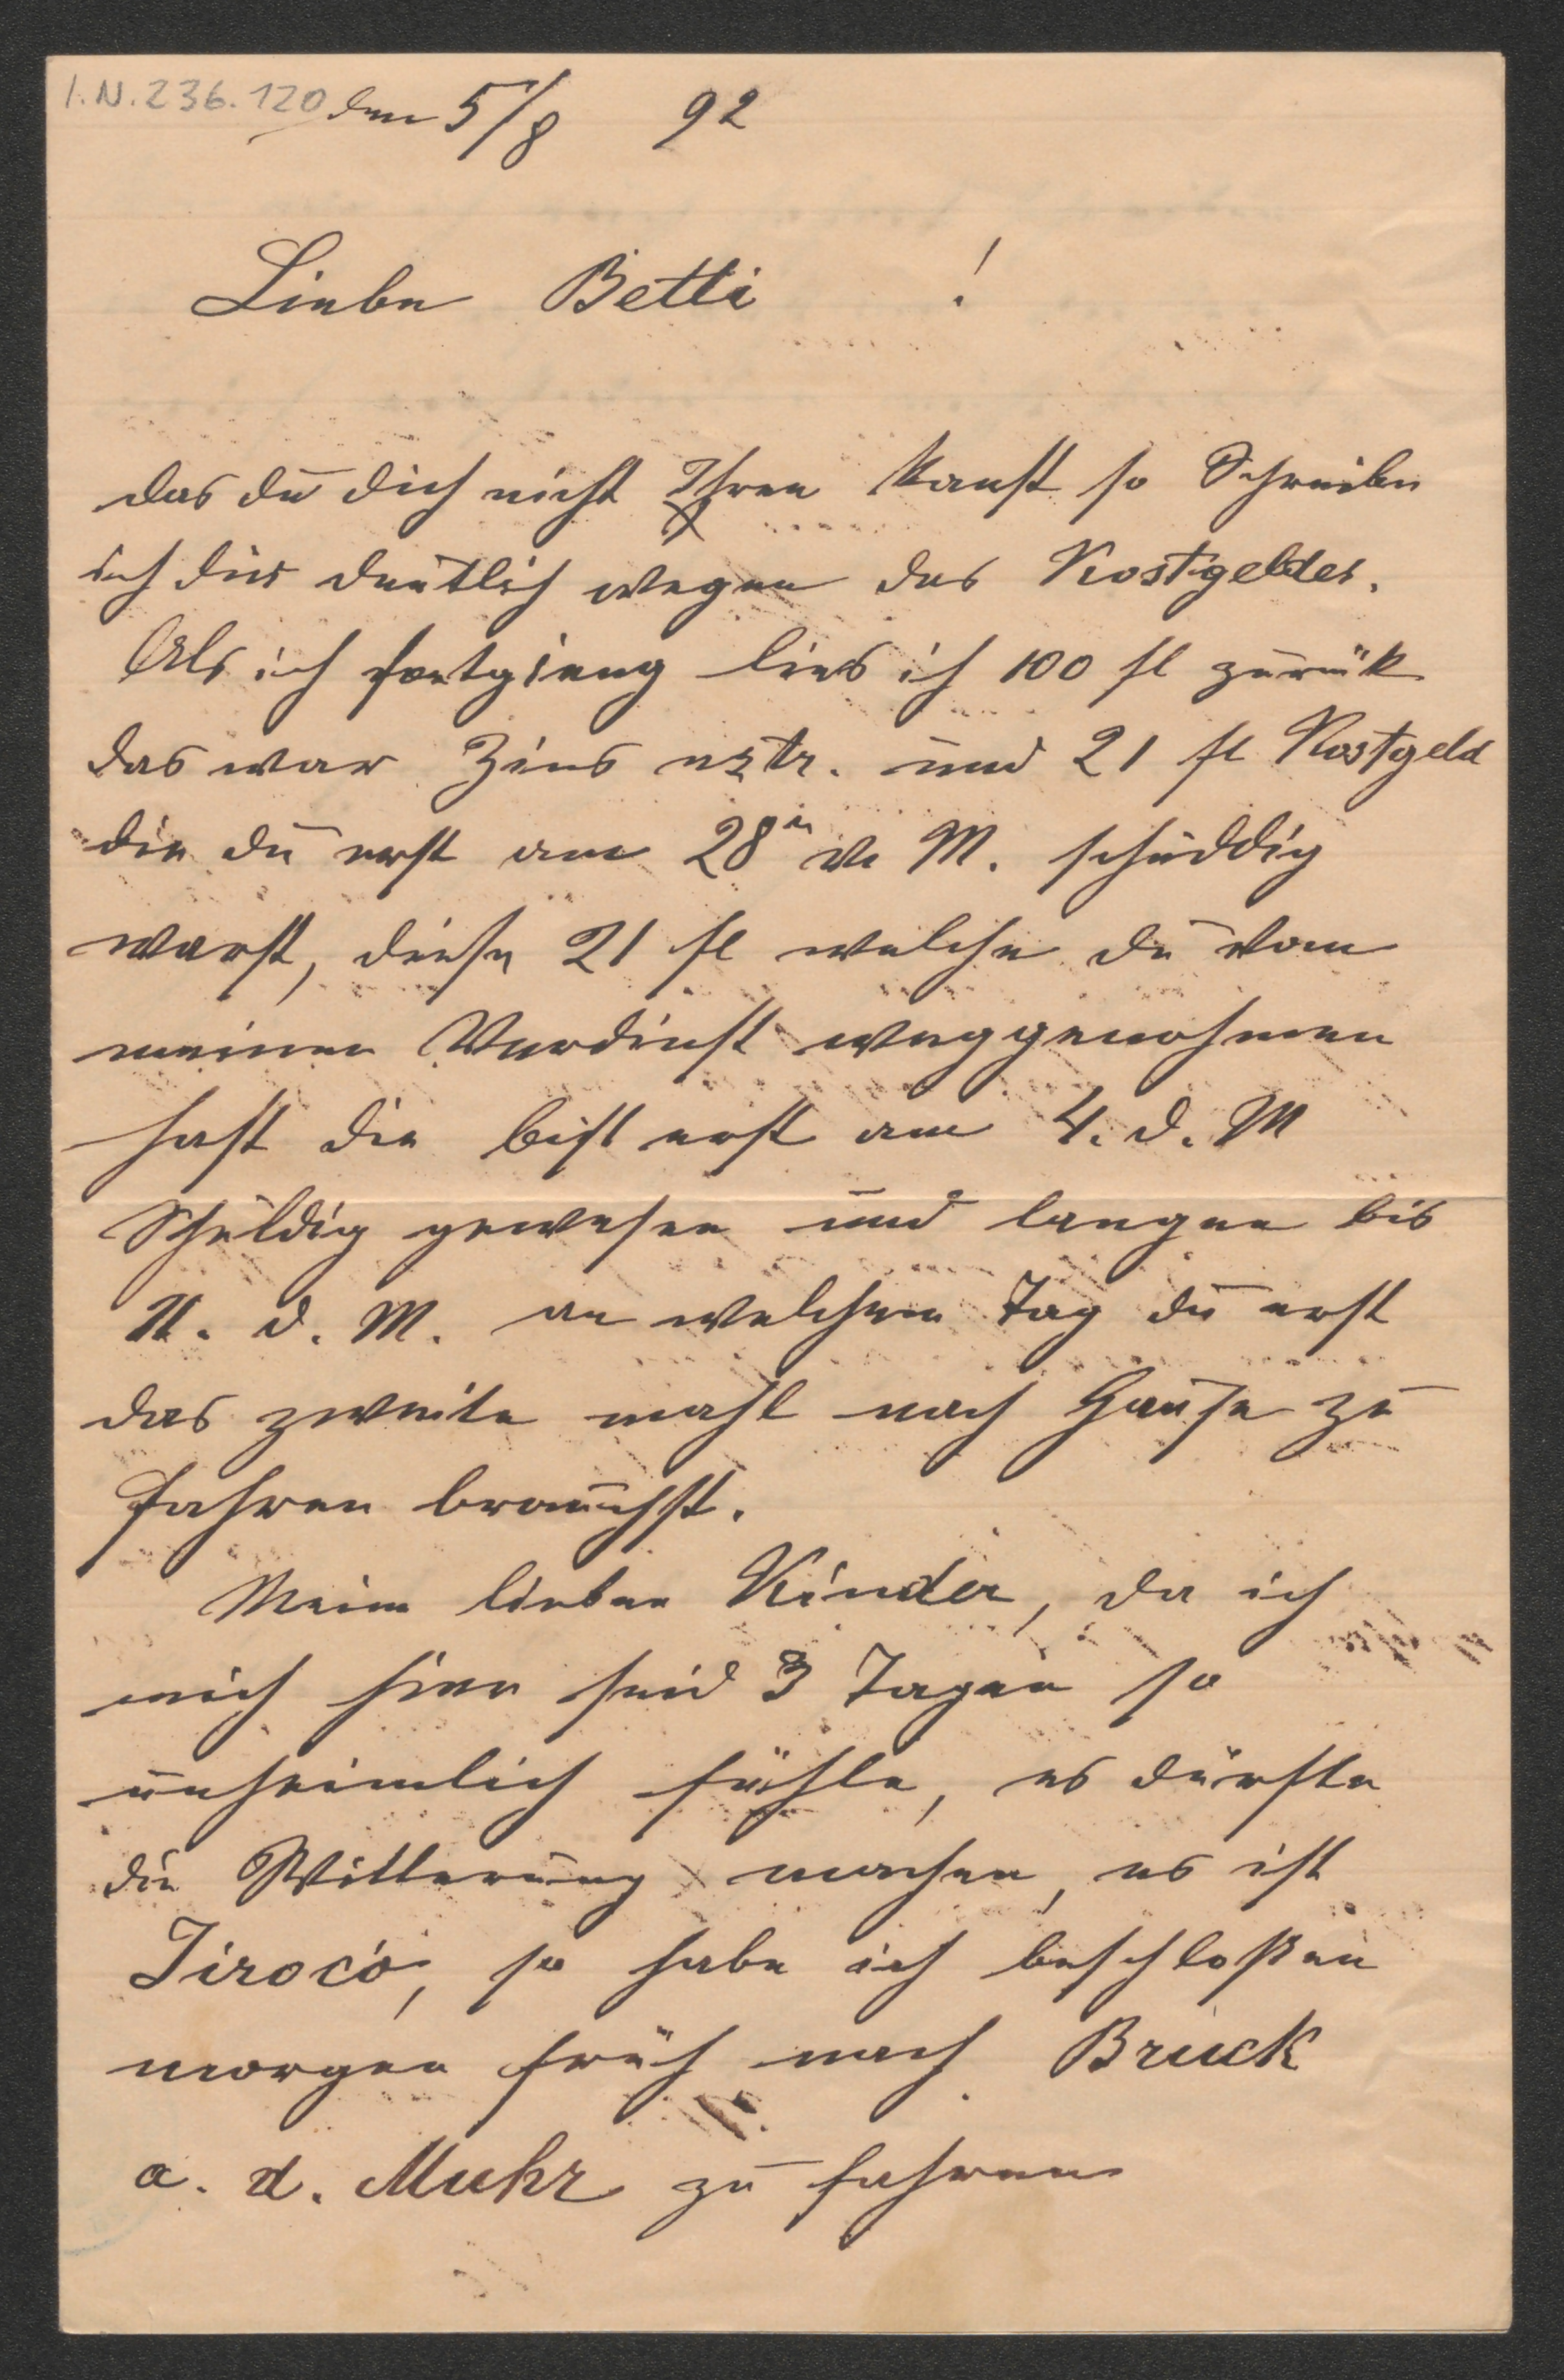 I.N. 236.120 den 5/8 92
Liebe Betti !
das du dich nicht Ihren kanst so Schreibe
ich dir deutlich wegen das Kostgeldes.
Als ich fortgieng lies ich 100 fl zurük
das war Zins extr. und 21 fl Kostgeld
die du erst am 28n v. M. schuddig
warst, diese 21 fl welche du vom
meinen Verdinst weggenohmen
hast die bist erst am 4. d. M
Schuldig gewesen und langen bis
11. d. M. an welchem Tag du erst
das zweite mahl nach Hause zu
fahren brauchst.
Meine lieben Kinder, da ich
mich hier seid 3 Tagen so
unheimlich fühle, es dürfte
die Witterung machen, es ist
Siroco, so habe ich beschloßen
morgen früh nach Bruck
a. d. Muhr zu fahren